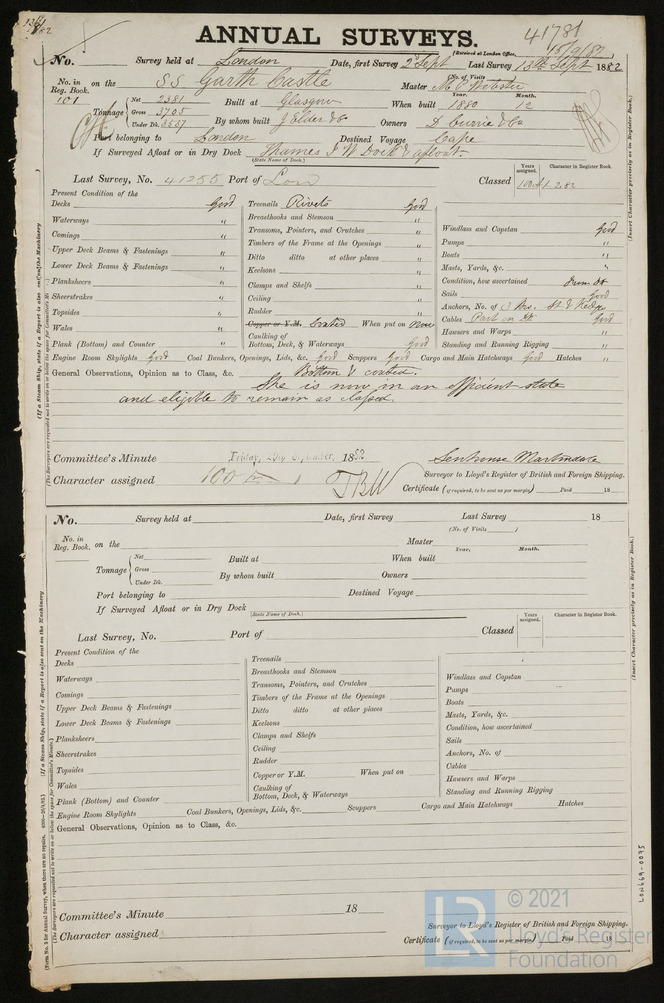 ANNUAL SURVEYS.
41781
15/9/82
(Received at London Office,
No. Survey held at London Date, first Survey 2nd Sept Last Survey 13th Sept 1882
(No. of Visits)
No. in Reg. Book. on the SS Garth Castle Master
101 Year. Month.
Tonnage Net 2381 Built at Glasgow When built 1880 12
Gross 3705
Under Dk. 3537 By whom built J Elder & Co Owners D Currie & Co
Port belonging to London Destined Voyage Cape
If Surveyed Afloat or in Dry Dock Thames I W Dock & afloat
(State Name of Dock.)
Years assigned. Character in Register Book.
Last Survey, No. 41255 Port of Lon Classed 100A1 2.82
Present Condition of the
Decks Good Treenails Rivets Good
Waterways " Breasthooks and Stemson " Windlass and Capstan Good
Comings " Transoms, Pointers, and Crutches " Pumps "
Upper Deck Beams & Fastenings " Timbers of the Frame at the Openings " Boats "
Lower Deck Beams & Fastenings " Ditto ditto at other places " Masts, Yards, &c. "
Planksheers " Keelsons " Condition, how ascertained from Dk
Sheerstrakes " Clamps and Shelfs " Sails Good
Topsides " Ceiling " Anchors, No. of
Wales " Rudder " Cables Part on Dk Good
Plank (Bottom) and Counter " Copper or Y.M. Coated When put on now Hawsers and Warps "
Caulking of Bottom, Deck, & Waterways Good Standing and Running Rigging "
Engine Room Skylights Good Coal Bunkers, Openings, Lids, &c. Good Scuppers Good Cargo and Main Hatchways Good Hatches "
General Observations, Opinion as to Class, &c. Bottom & coated.
She is now in an efficient state
and eligible to remain as classed.
Committee's Minute Friday, September, 1882
Character assigned 100 1
Surveyor to Lloyd's Register of British and Foreign Shipping.
Certificate (if required, to be sent as per margin) Paid 18
No. Survey held at Date, first Survey Last Survey 18
(No. of Visits )
No. in Reg. Book. on the Master
Year. Month.
Tonnage Net Built at When built
Gross
Under Dk. By whom built Owners
Port belonging to Destined Voyage
If Surveyed Afloat or in Dry Dock
(State Name of Dock.)
Years assigned. Character in Register Book.
Last Survey, No. Port of Classed
Present Condition of the
Decks Treenails
Waterways Breasthooks and Stemson Windlass and Capstan
Comings Transoms, Pointers, and Crutches Pumps
Upper Deck Beams & Fastenings Timbers of the Frame at the Openings Boats
Lower Deck Beams & Fastenings Ditto ditto at other places Masts, Yards, &c.
Planksheers Keelsons Condition, how ascertained
Sheerstrakes Clamps and Shelfs Sails
Topsides Ceiling Anchors, No. of
Wales Rudder Cables
Plank (Bottom) and Counter Copper or Y.M. When put on Hawsers and Warps
Caulking of Bottom, Deck, & Waterways Standing and Running Rigging
Engine Room Skylights Coal Bunkers, Openings, Lids, &c. Scuppers Cargo and Main Hatchways Hatches
General Observations, Opinion as to Class, &c.
Committee's Minute 18
Character assigned
Surveyor to Lloyd's Register of British and Foreign Shipping.
Certificate (if required, to be sent as per margin) Paid 18
(Insert Character precisely as in Register Book.)
(Insert Character precisely as in Register Book.)
LON669-0095
© 2021
LR Lloyd's Register
Foundation